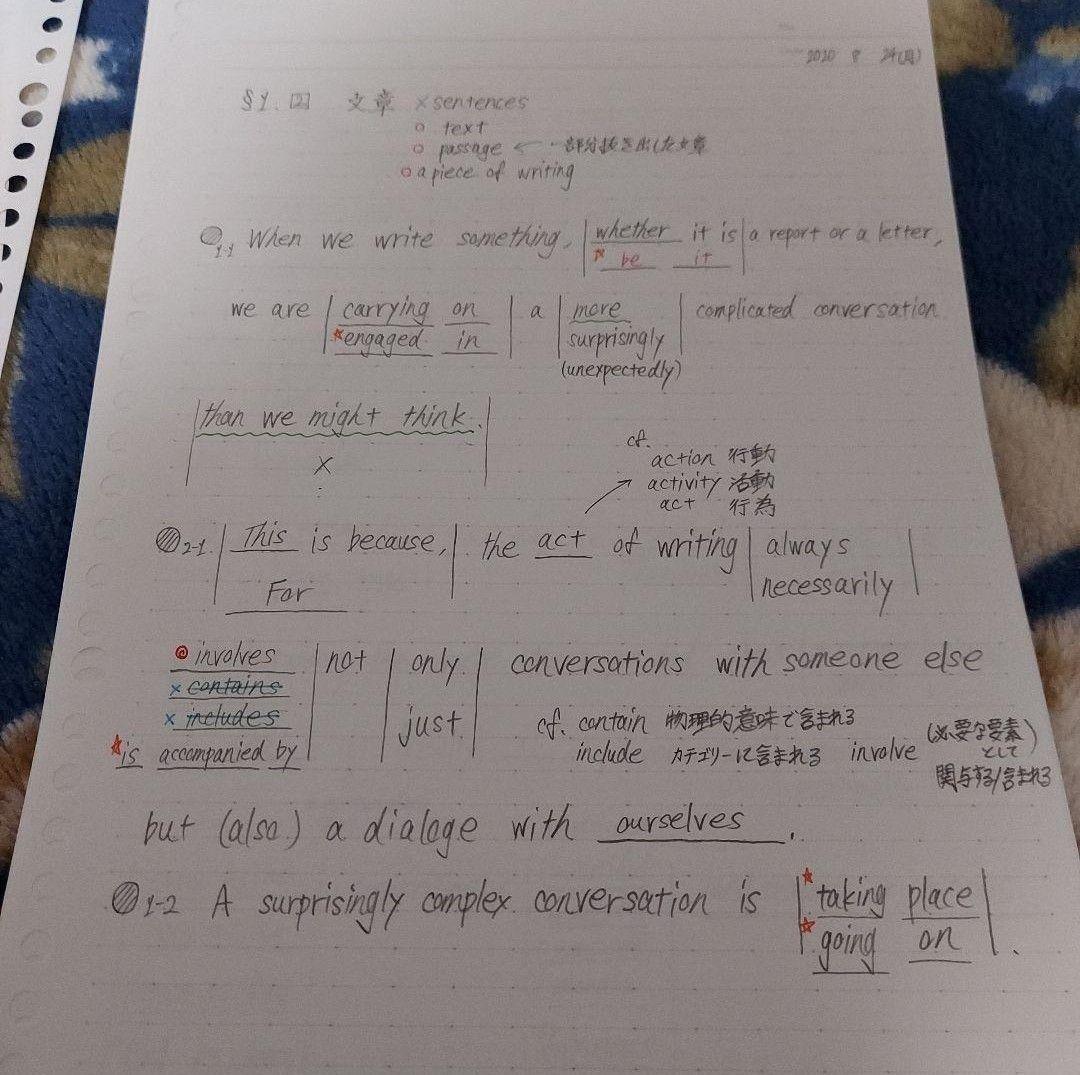 2020 8 24(月)
§1. 2 文章 × sentences
○ text
○ passage ← 一部分抜き出した文章
○ a piece of writing
1-1 When we write something, whether it is a report or a letter,
* be it
we are carrying on a more complicated conversation
*engaged in surprisingly
(unexpectedly)
than we might think.
×
cf.
action 行動
activity 活動
act 行為
2-1 This is because, the act of writing always
For necessarily
◎ involves not only conversations with someone else
× contains
× includes just cf. contain 物理的意味で含まれる
☆is accompanied by include カテゴリーに含まれる involve (必要な要素)として
関与する/含まれる
but (also) a dialoge with ourselves.
1-2 A surprisingly complex conversation is ☆taking place
☆going on.